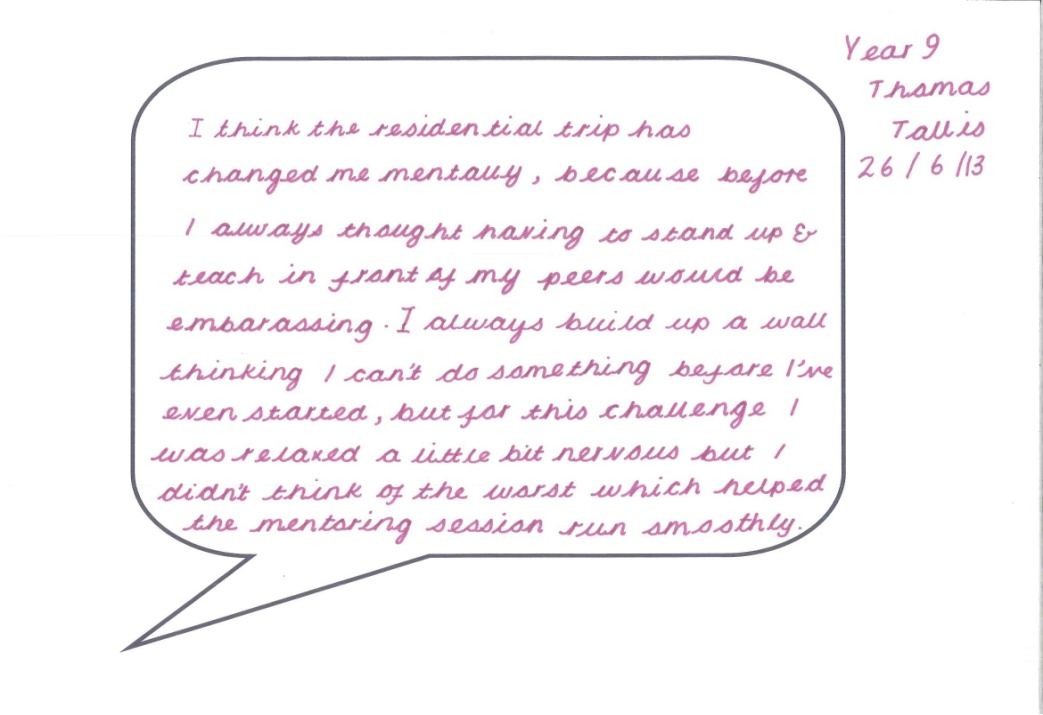 Year 9
Thomas
Tallis
26 / 6 /13
I think the residential trip has
changed me mentally, because before
I always thought having to stand up &
teach in front of my peers would be
embarassing. I always build up a wall
thinking I can't do something before I've
even started, but for this challenge I
was relaxed a little bit nervous but I
didn't think of the worst which helped
the mentoring session run smoothly.